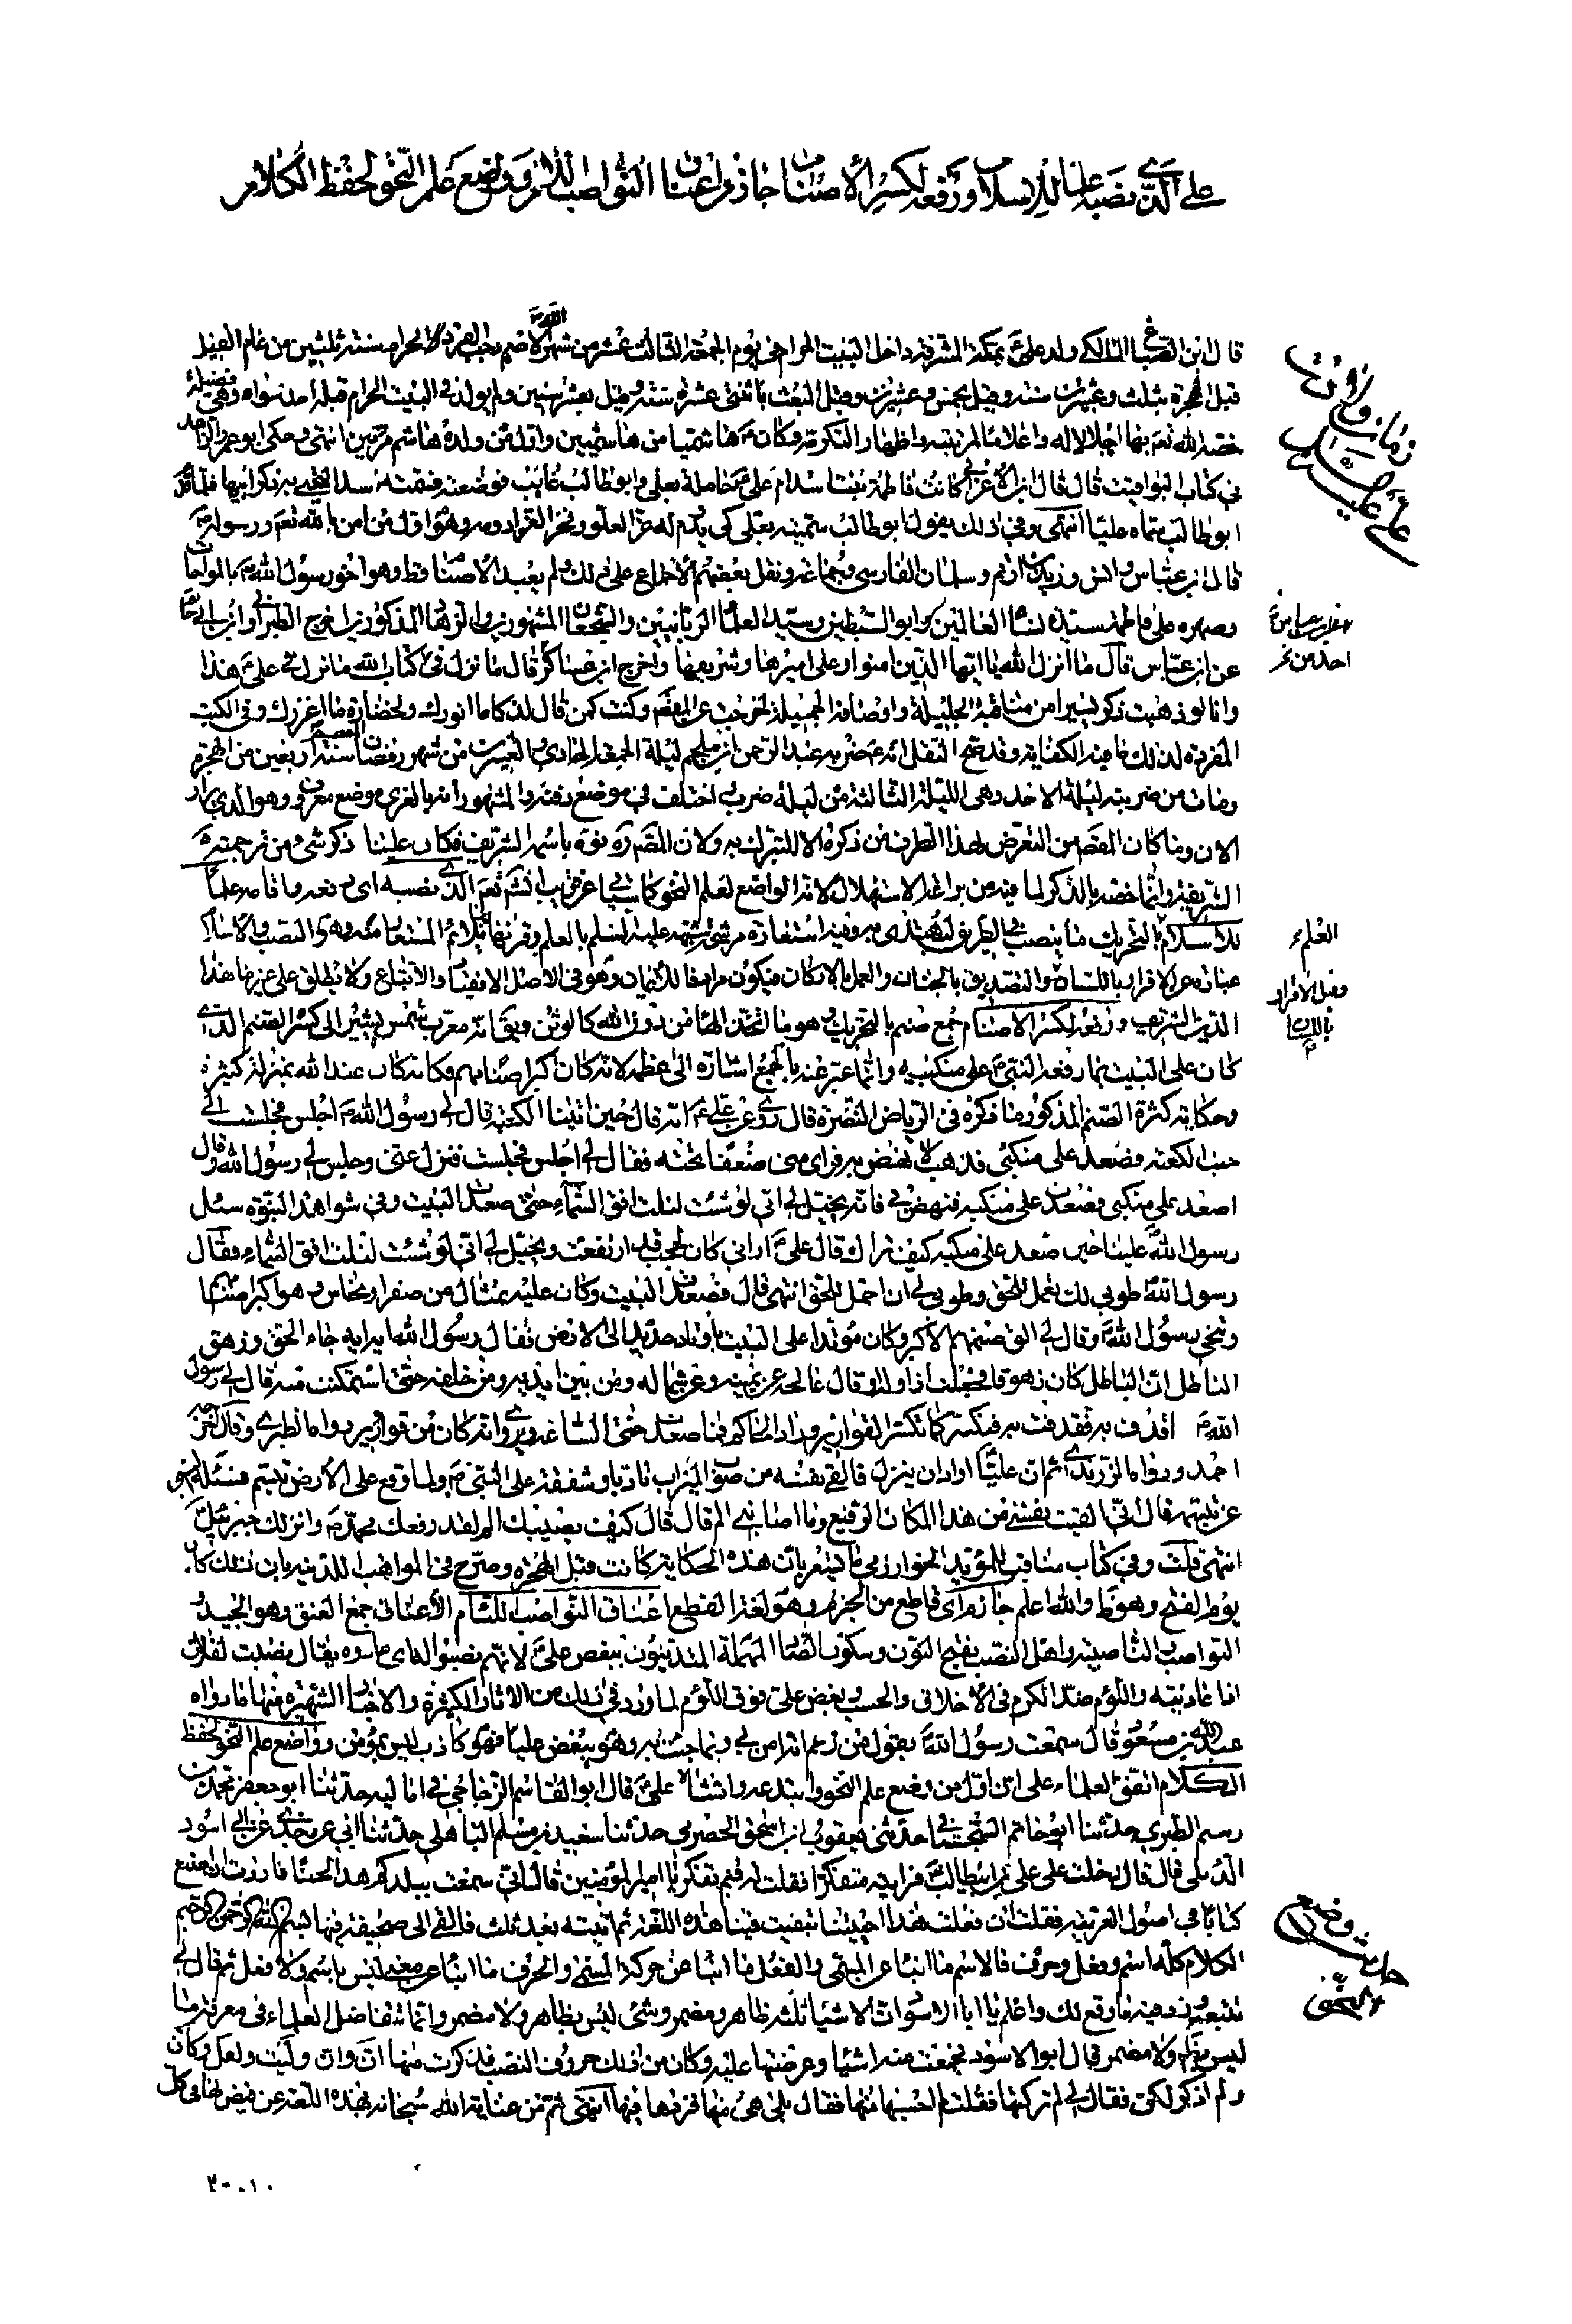 علي الذي نصبه علما للاسلام ورفعه لكسر الاصنام جازم اعناق النواصب اللئام وواضع علم النحو لحفظ الكلام
قال ابن الصباغ المالكي ولد علي ع بمكة المشرفة داخل البيت الحرام في يوم الجمعة الثالث عشر من شهر الله الاصم رجب الفرد الحرام سنة ثلثين من عام الفيل
قبل الهجرة بثلث وعشرين سنة وقيل بخمس وعشرين وقبل البعث باثنتي عشرة سنة وقيل بعشر سنين ولم يولد في البيت الحرام قبله احد سواه وهي فضيلة
خصه الله تعم بها اجلالا له واعلاء لمرتبته واظهارا لتكرمته وكان ع هاشميا من هاشميين واول من ولده هاشم مرتين انتهى وحكى ابو عمر الزاهد
في كتاب اليواقيت قال قال ابن الاعرابي كانت فاطمة بنت اسد ام علي ع حاملة بعلي وابو طالب غائب فوضعته فسمته اسدا لتحيي به ذكر ابيها فلما قدم
ابو طالب سماه عليا انتهى وفي ذلك يقول ابو طالب سميته بعلي كي يدوم له عز العلو وفخر العز ادومه وهو اول من امن بالله تعم ورسوله ص
قال ابن عباس وانس وزيد بن ارقم وسلمان الفارسي وجماعة ونقل بعضهم الاجماع على ذلك ولم يعبد الاصنام قط وهو اخو رسول الله ص بالمواخات
وصهره على فاطمة سيدة نساء العالمين وابو السبطين وسيد العلماء الربانيين والشجعان المشهورين والزهاد المذكورين اخرج الطبراني وابن ابي حاتم
عن ابن عباس قال ما انزل الله يا ايها الذين امنوا وعلي اميرها وشريفها واخرج ابن عساكر قال ما نزل في كتاب الله ما نزل في علي ع هذا
وانا لو ذهبت ذكر يسيرا من مناقبه الجليلة واوصافه الجميلة لخرجت عن المقصد وكنت كمن قال لذكاء ما انورك ولخضارة ما اغزرك وفي الكتب
المفردة لذلك ما فيه الكفاية وقد صح النقل انه ع ضربه عبد الرحمن ابن ملجم ليلة الجمعة الحادي والعشرين من شهر رمضان سنة اربعين من الهجرة
ومات من ضربته ليلة الاحد وهي الليلة الثالثة من ليلة ضرب واختلف في موضع دفنه والمشهور انه بالغري موضع معروف وهو الذي يزار
الان وما كان المقصد من التعرض لهذا الطرف من ذكره الا للتبرك به ولان المصنف ره نوه باسمه الشريف فكان علينا ذكر شيء من ترجمته
الشريفة وانما خصه بالذكر لما فيه من براعة الاستهلال لانه الواضع لعلم النحو كما سياتي عن قريب انشاء الله تعم الذي نصبه اي رفعه واقامه علما
للاسلام بالتحريك ما ينصب في الطريق ليهتدى به وفيه استعارة مرشحة شبه عليه السلم بالعلم وقرنها بما يلائم المستعار منه وهو النصب والاسلام
عبارة عن الاقرار باللسان والتصديق بالجنان والعمل بالاركان فيكون مرادفا للايمان وهو في الاصل الانقياد والاتباع ولا يطلق على غير ما هذا
الدين الشريف ورفعه لكسر الاصنام جمع صنم بالتحريك وهو ما اتخذ الها من دون الله كالوثن ويقال انه معرب شمن يشير الى كسر الصنم الذي
كان على البيت بما رفعه النبي ص على منكبيه وانما عبر عنه بالجمع اشارة الى عظمه لانه كان اكبر اصنامهم فكانه كان عند الله بمنزلة كثيرة
وحكاية كسره الصنم المذكور ما ذكره في الرياض النضرة قال روي عن علي ع انه قال حين اتينا الكعبة قال لي رسول الله ص اجلس فجلست الى
جنب الكعبة فصعد على منكبي فذهبت لانهض به فراى مني ضعفا تحته فقال لي اجلس فجلست فنزل عني وجلس لي رسول الله وقال
اصعد على منكبي فصعدت على منكبيه فنهض بي فانه يخيل لي اني لو شئت لنلت افق السماء حتى صعدت البيت وفي شواهد النبوة سئل
رسول الله ص عليا حين صعد على منكبه كيف تراك قال علي ع اراني كان الحجب قد ارتفعت ويخيل لي اني لو شئت لنلت افق السماء فقال
رسول الله ص طوبى لك تعمل للحق وطوبى لي ان احمل للحق انتهى قال فصعدت البيت وكان عليه تمثال من صفر او نحاس وهو اكبر اصنامها
وتنحى رسول الله ص وقال لي الق صنمهم الاكبر وكان موتدا على البيت باوتاد حديد الى الارض فقال رسول الله ايه ايه جاء الحق وزهق
الباطل ان الباطل كان زهوقا فجعلت ازاوله او قال اعالجه عن يمينه وعن شماله ومن بين يديه ومن خلفه حتى استمكنت منه قال لي رسول
الله ص اقذف به فقذفت به فتكسر كما تكسر القوارير وزاد الحاكم فما صعدت حتى الساعة ويروى انه كان من قوارير رواه الطبري وقال اخرجه
احمد ورواه الزرندي ثم ان عليا اراد ان ينزل فالقى نفسه من صوب الميزاب تادبا وشفقة على النبي ص ولما وقع على الارض تبسم فسئله النبي
عن تبسمه قال اني القيت نفسي من هذا المكان الرفيع وما اصابني الم قال قال كيف يصيبك الم لقد رفعك محمد ص وانزلك جبرئيل ع
انتهى قلت وفي كتاب مناقب المؤيد الخوارزمي ما يشعر بان هذه الحكاية كانت قبل الهجرة وصرح في المواهب اللدنية بان ذلك كان
يوم الفتح وهو والله اعلم جازم اي قاطع من الجزم وهو لغة القطع اعناق النواصب اللئام الاعناق جمع العنق وهو الجيد و
النواصب الناصبية واهل النصب بفتح النون وسكون الصاد المهملة المتدينون ببغض علي ع لانهم نصبوا له اي عادوه يقال نصبت لفلان
اذا عاديته واللؤم ضد الكرم في الاخلاق والحسب وبغض علي فوق اللؤم لما ورد في ذلك من الاثار الكثيرة والاخبار الشهيرة منها ما رواه
عبد الله بن مسعود قال سمعت رسول الله ص يقول من زعم انه امن بي وبما جئت به وهو يبغض عليا فهو كاذب ليس بمؤمن وواضع علم النحو لحفظ
الكلام اتفق العلماء على ان اول من وضع علم النحو وابتدعه وانشاه علي ع قال ابو القاسم الزجاجي في اماليه حدثنا ابو جعفر محمد بن
رستم الطبري حدثنا ابو حاتم السجستاني حدثني يعقوب ابن اسحق الحضرمي حدثنا سعيد بن مسلم الباهلي حدثنا ابي عن جدي عن ابي اسود
الدئلي قال قال دخلت على علي بن ابيطالب ع فرايته متفكرا فقلت له فيم تفكر يا امير المؤمنين قال اني سمعت ببلدكم هذا لحنا فاردت ان اصنع
كتابا في اصول العربية فقلت ان فعلت هذا احييتنا وبقيت فينا هذه اللغة ثم اتيته بعد ثلث فالقى الى صحيفة فيها بسم الله الرحمن الرحيم
الكلام كله اسم وفعل وحرف فالاسم ما انبا عن المسمى والفعل ما انبا عن حركة المسمى والحرف ما انبا عن معنى ليس باسم ولا فعل ثم قال لي
تتبعه وزد فيه ما وقع لك واعلم يا ابا الاسود ان الاشياء ثلثة ظاهر ومضمر وشيء ليس بظاهر ولا مضمر وانما تتفاضل العلماء في معرفة ما
ليس بظاهر ولا مضمر قال ابو الاسود فجمعت منه اشياء وعرضتها عليه وكان من ذلك حروف النصب فذكرت منها ان وان وليت ولعل وكان
ولم اذكر لكن فقال لي لم تركتها فقلت لم احسبها منها فقال بلى هي منها فزدها فيها انتهى ثم من عناية الله سبحانه بهذه اللغة عن فيض لها في كل
العلم
وقيل الاقرار
باللسان
حديث وضع
النحو